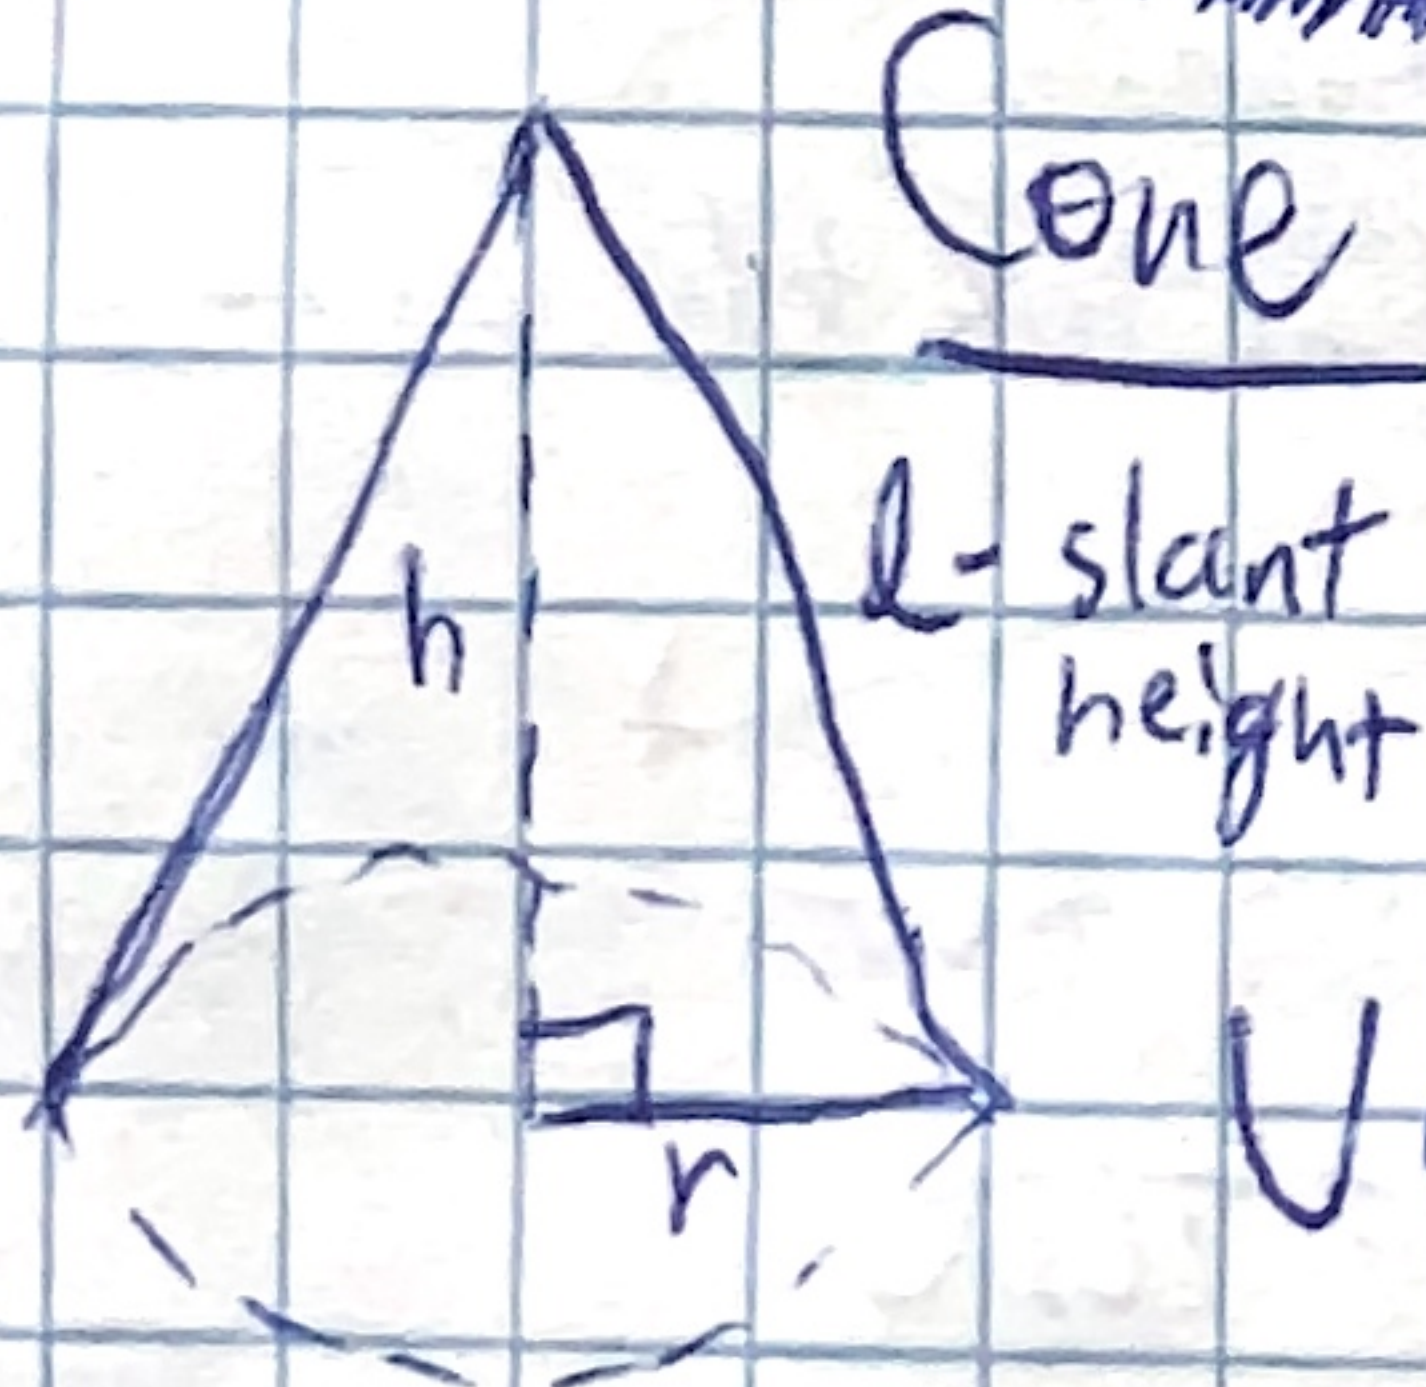 Cone
l - slant
height
h
r